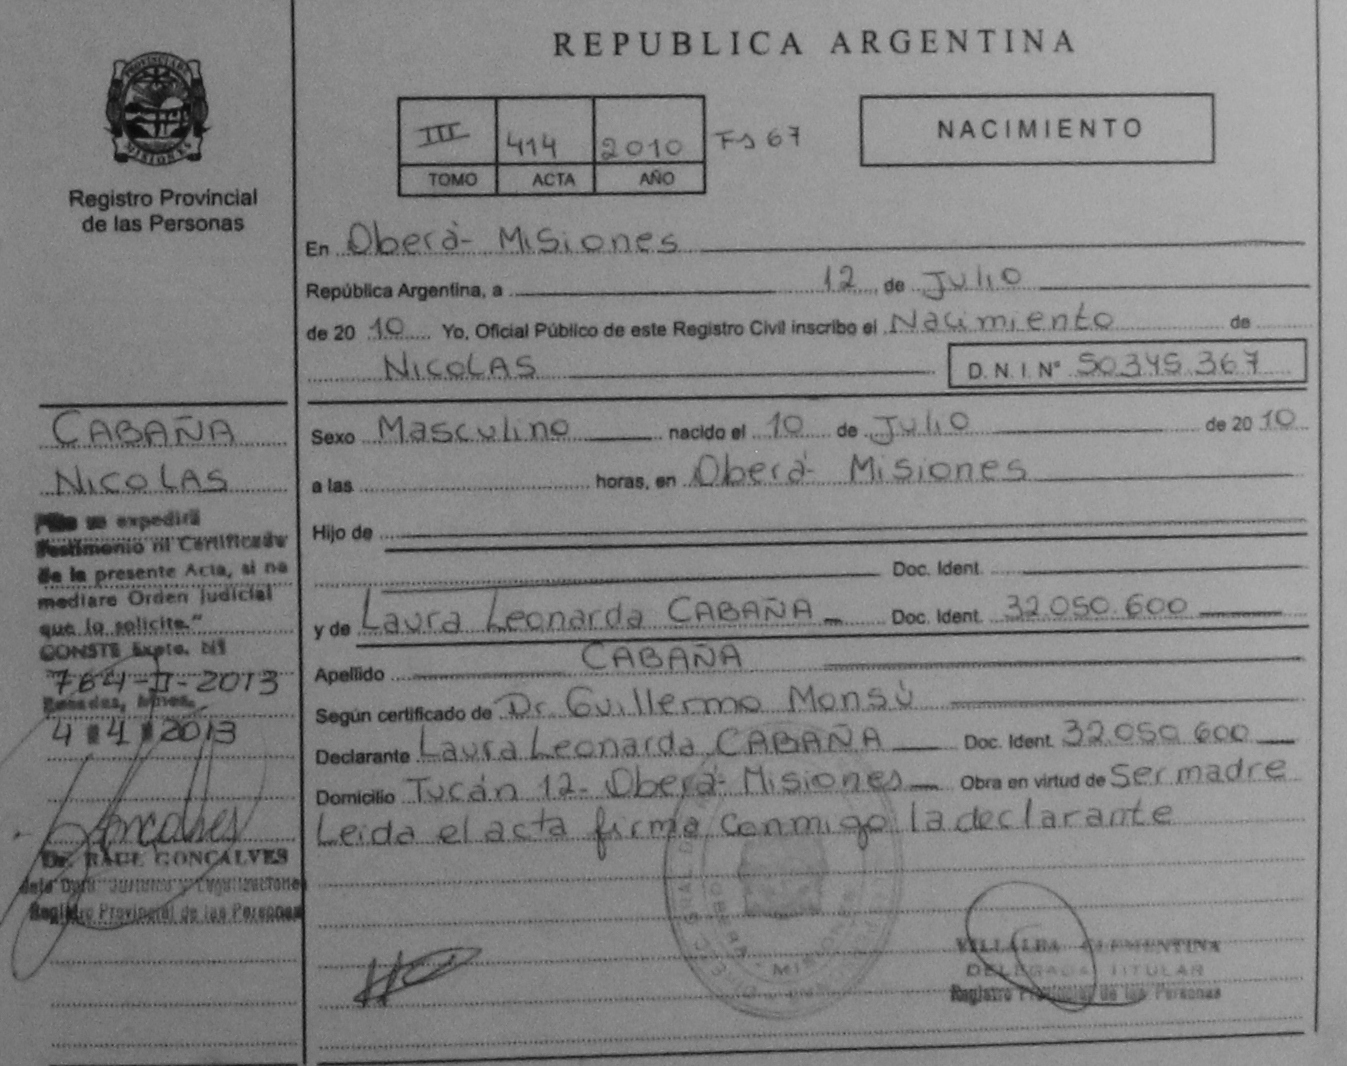 REPUBLICA ARGENTINA
PROVINCIA DE
MISIONES
Registro Provincial
de las Personas
III 414 2010 Fs 67
TOMO ACTA AÑO
NACIMIENTO
En Oberá- Misiones
República Argentina, a 12 de Julio
de 20 10 Yo, Oficial Público de este Registro Civil inscribo el Nacimiento de
NICOLAS D. N. I. N° 50.345.367
CABAÑA
NICOLAS
expedirá
Testimonio ni Certificado
de la presente Acta, si no
mediare Orden Judicial
que lo solicite."
CONSTE Expte.
764-II-2013
Posadas, Mnes.
4 4 2013
Dr. RAUL GONCALVES
Registro Provincial de las Personas
Sexo Masculino nacido el 10 de Julio de 20 10
a las horas, en Oberá- Misiones
Hijo de
Doc. Ident.
y de Laura Leonarda CABAÑA Doc. Ident. 32.050.600
Apellido CABAÑA
Según certificado de Dr. Guillermo Monsú
Declarante Laura Leonarda CABAÑA Doc. Ident. 32.050.600
Domicilio Tucán 12- Oberá- Misiones Obra en virtud de Ser madre
Leida el acta firma conmigo la declarante
VILLALBA CLEMENTINA
DELEGADA TITULAR
Registro Provincial de las Personas